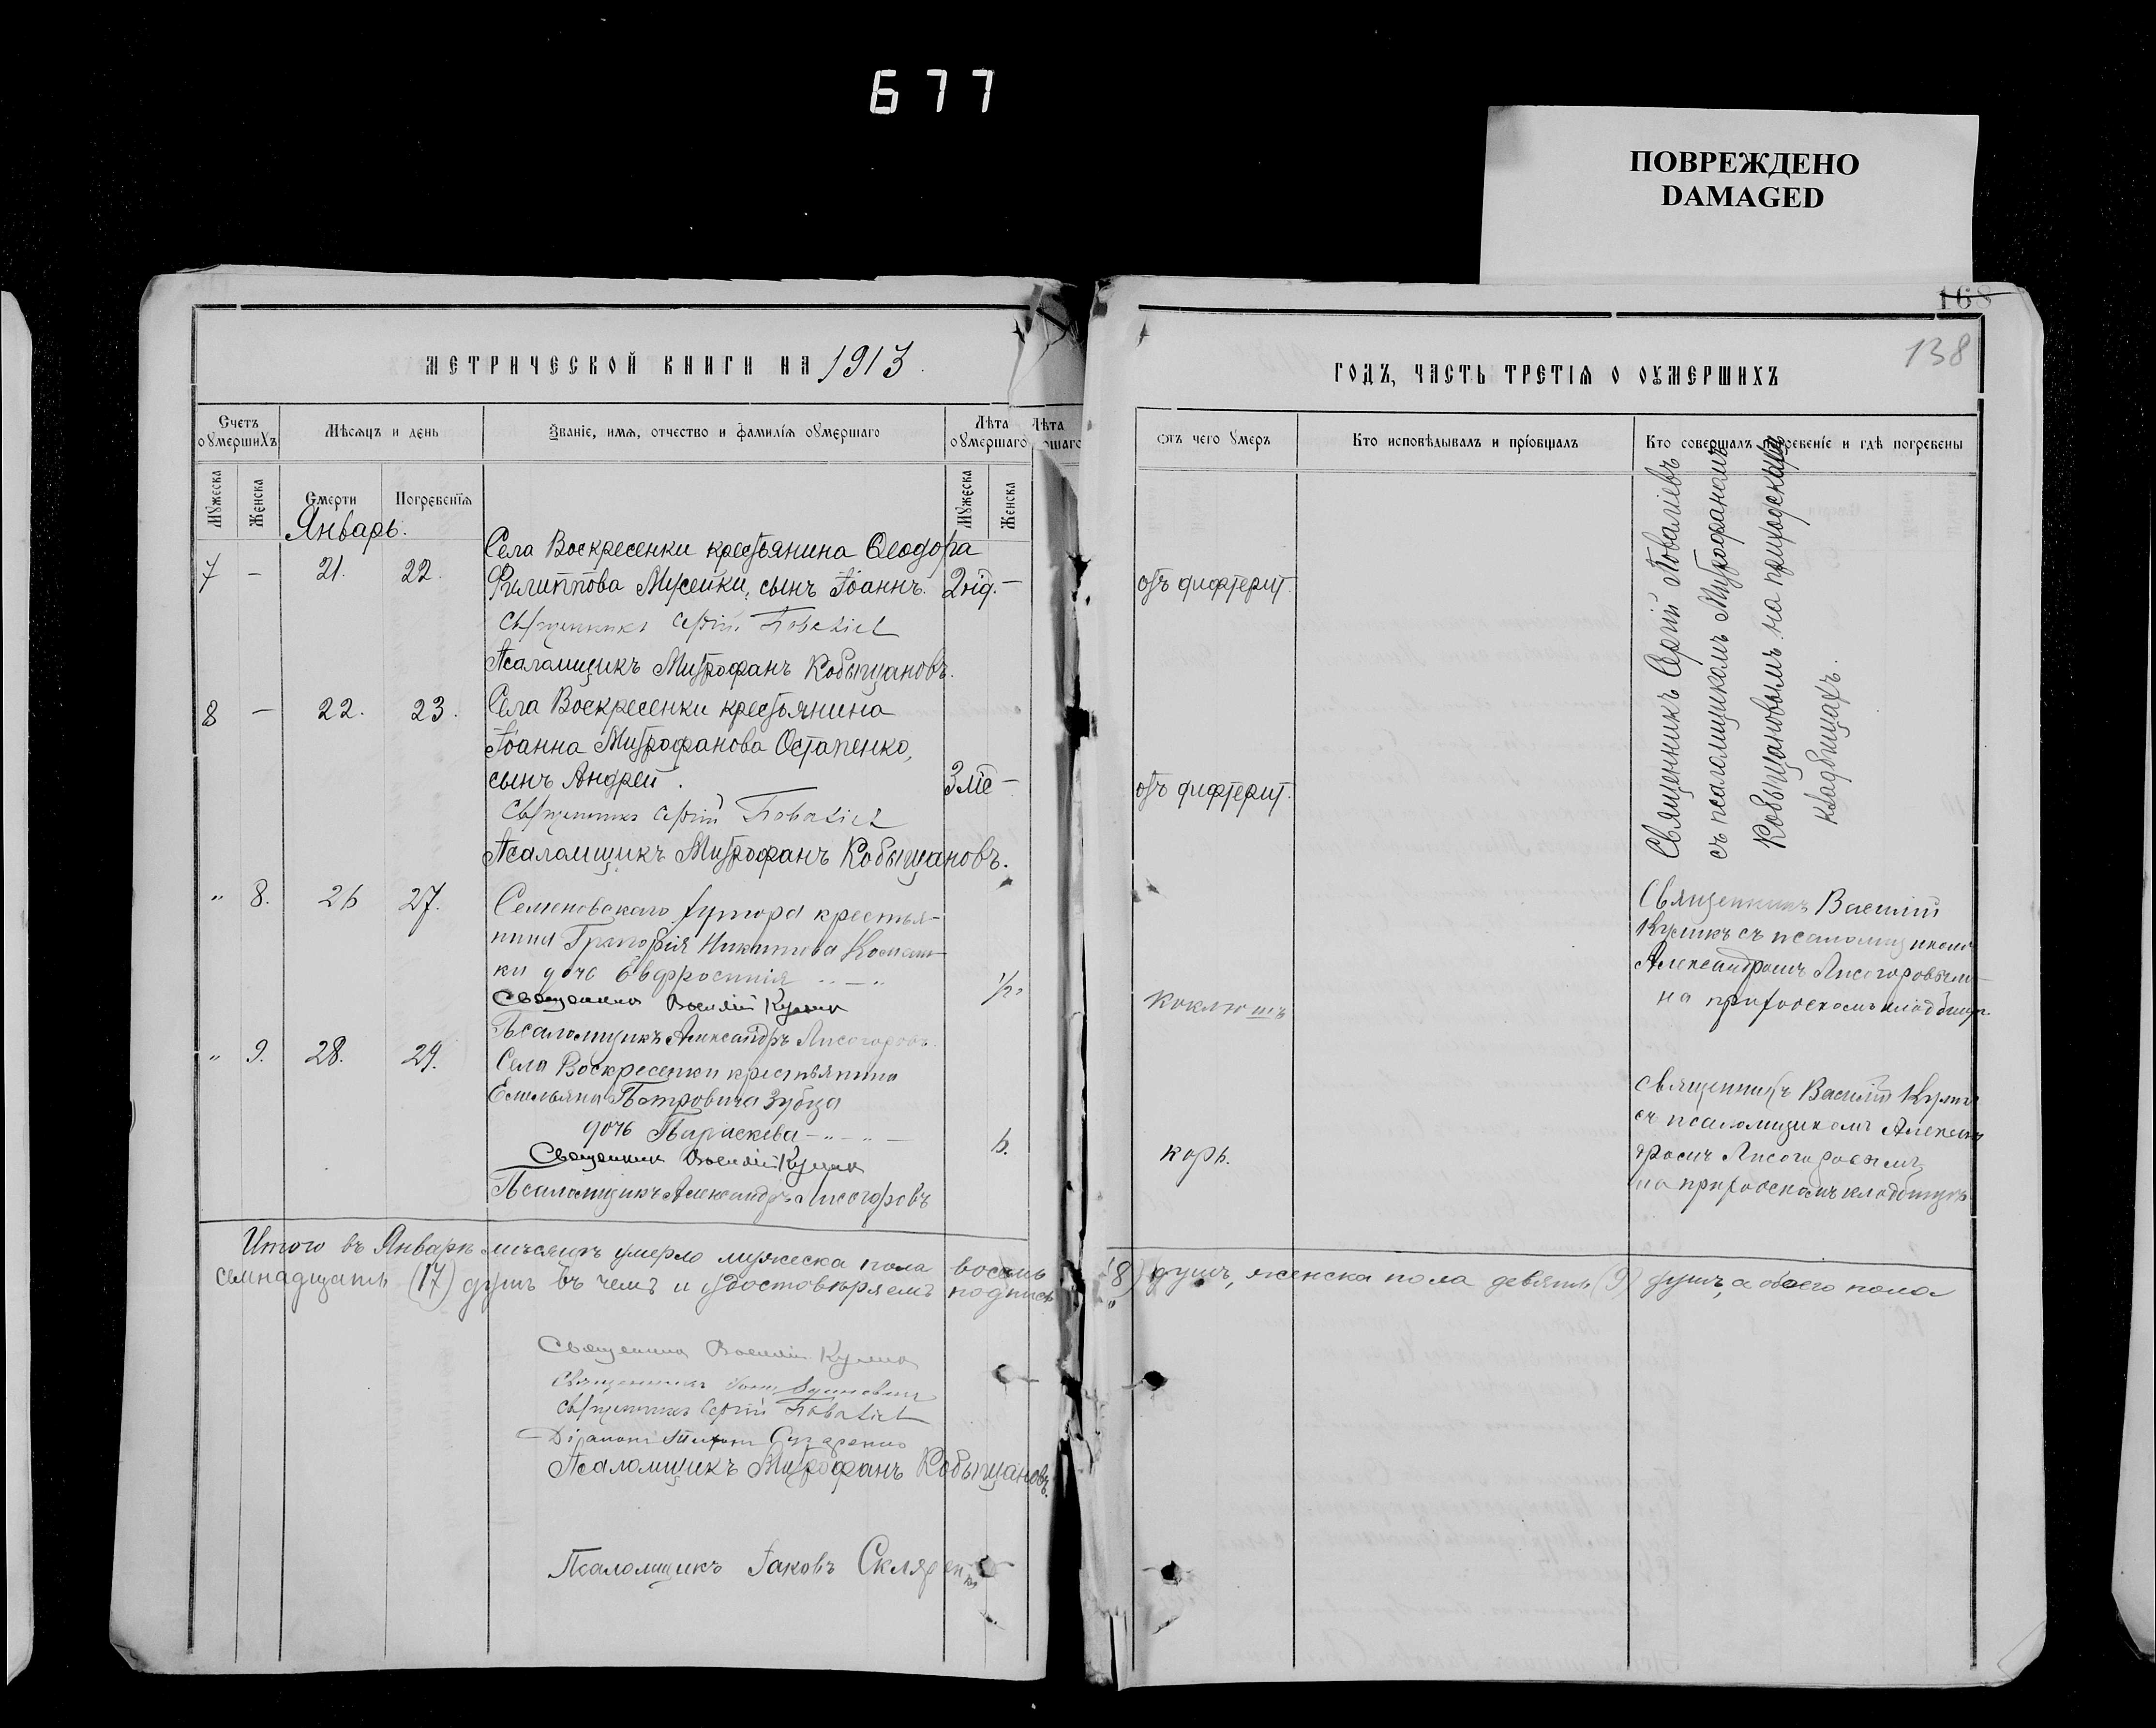 677
ПОВРЕЖДЕНО
DAMAGED
168
138
МЕТРИЧЕСКОЙ КНИГИ НА 1913
ГОДЪ, ЧАСТЬ ТРЕТІѦ О ОУМЕРШИХЪ
Счетъ оумершихъ
Мѣсяцъ и день
Званіе, имя, отчество и фамилія оумершаго
Лѣта оумершаго
Лѣта
ршаго
Отъ чего умеръ
Кто исповѣдывалъ и пріобщалъ
Кто совершалъ погребеніе и гдѣ погребены
Мужеска
Женска
Смерти
Погребенія
Мужеска
Женска
Январь.
Села Воскресенки крестьянина Ѳеодора
7 – 21. 22. Филиппова Мусейки, сынъ Іоаннъ. 2 нід. – отъ дифтерит.
Священникъ Сергій Поваліевъ
Псаломщикъ Митрофанъ Кобыщановъ.
8 – 22. 23. Села Воскресенки крестьянина
Іоанна Митрофанова Остапенко,
сынъ Андрей. 3 мѣ – отъ дифтерит.
Священникъ Сергій Поваліевъ
Псаломщикъ Митрофанъ Кобыщановъ.
Священникъ Сергій Поваліевъ
съ псаломщикомъ Митрофаномъ
Кобыщановымъ на приходскихъ
кладбищахъ.
" 8. 26 27. Семеновскаго хутора крестья-
нина Григорія Никитова
ки дочь Евфросинія " — " 1/2 Коклюшъ
Священникъ Василій Куликъ
Псаломщикъ Александръ Лисогоровъ.
Священникъ Василій
Куликъ съ псаломщикомъ
Александромъ Лисогоровымъ
на приходскомъ кладбищѣ.
" 9. 28. 29. Села Воскресенки крестьянина
Емельяна Петровича Зубца
дочь Параскева – " – " – 6. корь.
Священникъ Василій Куликъ
Псаломщикъ Александръ Лисогоровъ
Священникъ Василій Куликъ
съ псаломщикомъ Александ
ромъ Лисогоровымъ
на приходскомъ кладбищѣ
Итого въ Январѣ мѣсяцѣ умерло мужеска пола восемь (8) душъ, женска пола девять (9) душъ, а обоего пола
семнадцать (17) душъ въ чемъ и удостовѣряемъ подписью
Священникъ Василій Куликъ
Священникъ
Священникъ Сергій Поваліевъ
Діаконъ
Псаломщикъ Митрофанъ Кобыщановъ.
Псаломщикъ Іаковъ Скляренко